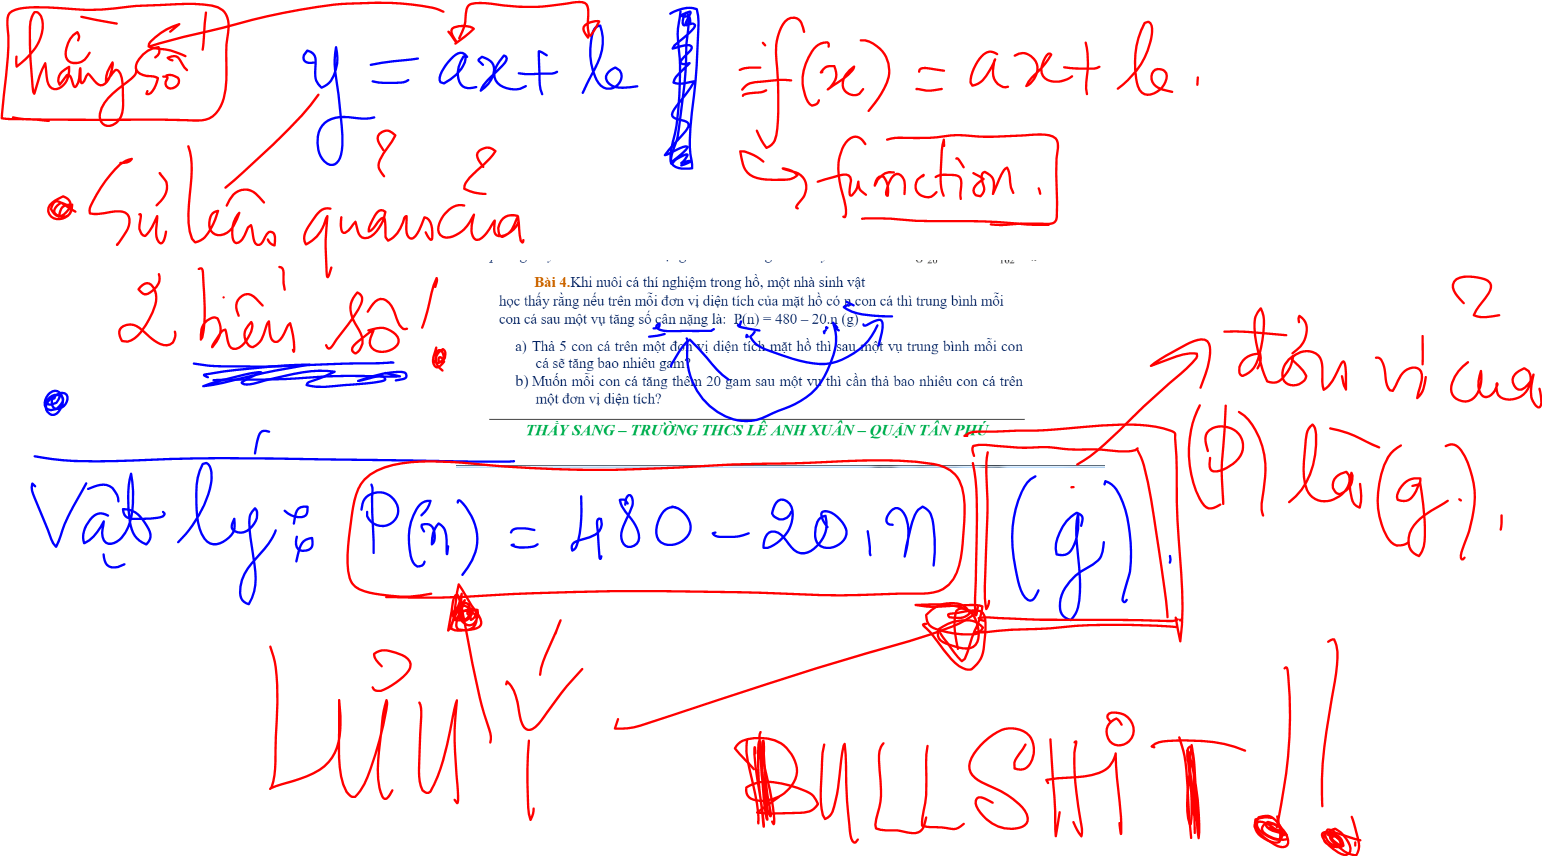 hằng số
y = ax + b
= f(x) = ax + b.
function.
Sự liên quan của
2 biến số!
Bài 4.Khi nuôi cá thí nghiệm trong hồ, một nhà sinh vật
học thấy rằng nếu trên mỗi đơn vị diện tích của mặt hồ có n con cá thì trung bình mỗi
con cá sau một vụ tăng số cân nặng là: P(n) = 480 – 20.n (g)
a) Thả 5 con cá trên một đơn vị diện tích mặt hồ thì sau một vụ trung bình mỗi con
cá sẽ tăng bao nhiêu gam?
b) Muốn mỗi con cá tăng thêm 20 gam sau một vụ thì cần thả bao nhiêu con cá trên
một đơn vị diện tích?
THẦY SANG – TRƯỜNG THCS LÊ ANH XUÂN – QUẬN TÂN PHÚ
đơn vị của
(P) là (g).
Vật lý: P(n) = 480 - 20.n (g).
LƯU Ý
BULLSHIT!!